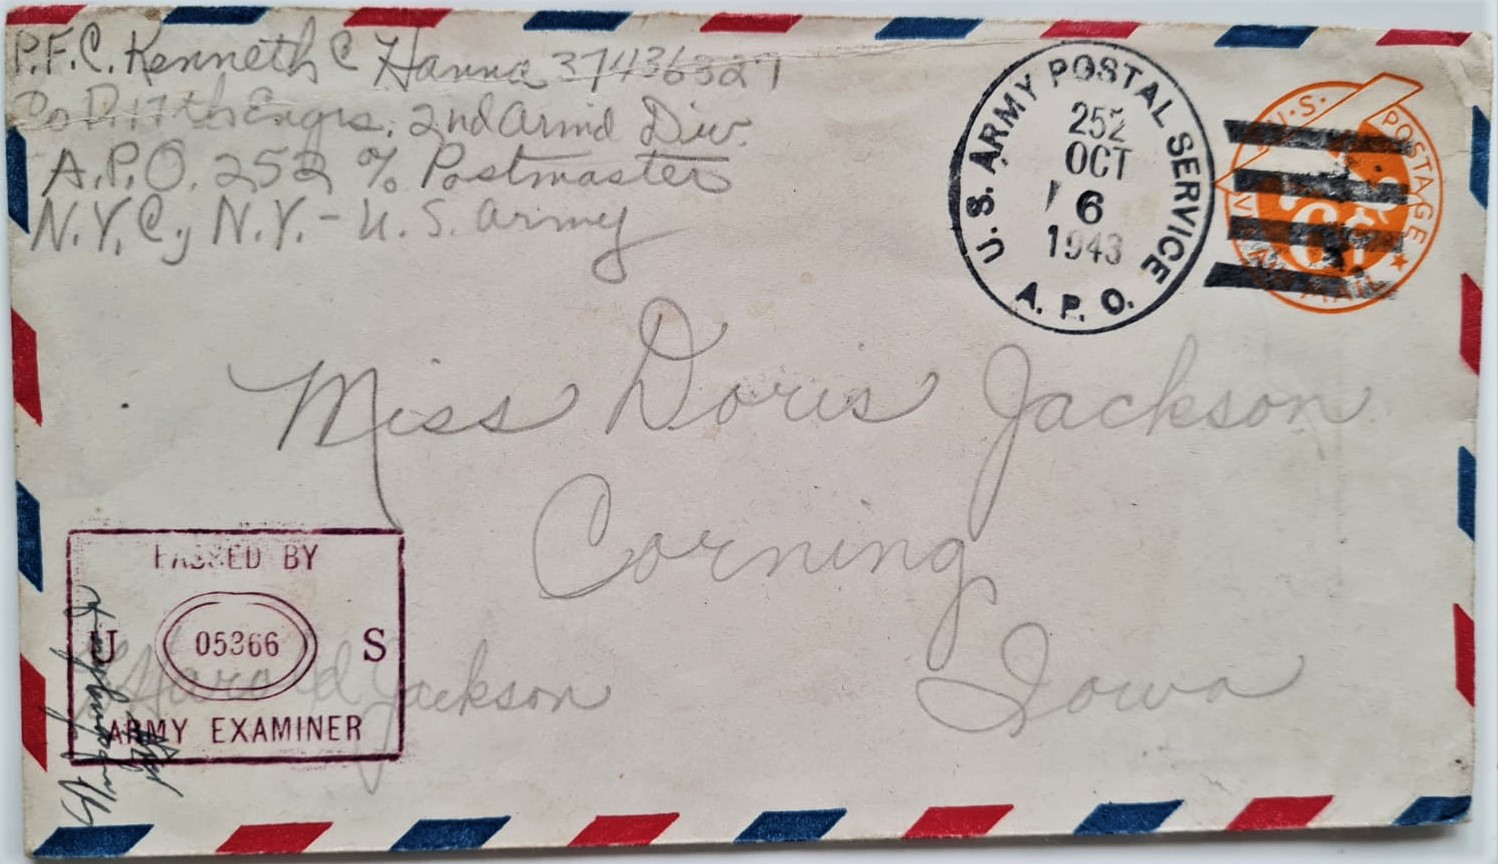 P.F.C. Kenneth C Hanna 37436327
Co D. 17th Engrs. 2nd Armd Div.
A.P.O. 252 % Postmaster
N.Y.C., N.Y. - U.S. Army
U.S. ARMY POSTAL SERVICE
252
OCT
6
1943
A. P. O.
U.S. POSTAGE
6¢
VIA AIR MAIL
Miss Doris Jackson
Corning
Iowa
PASSED BY
U 05366 S
ARMY EXAMINER
Harold Jackson